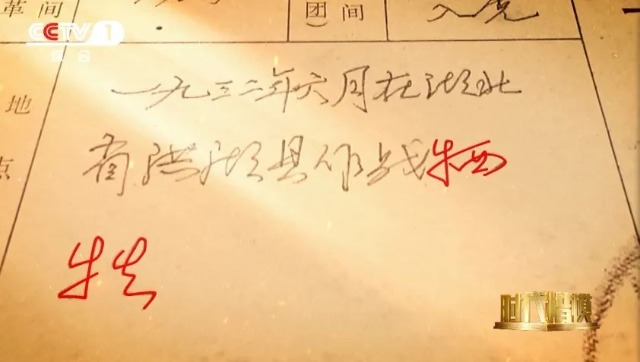 革间
团）间
入党
CCTV 1
综合
地
点
一九三二年六月在湖北
省洪湖县作战牺
牲
时代楷模